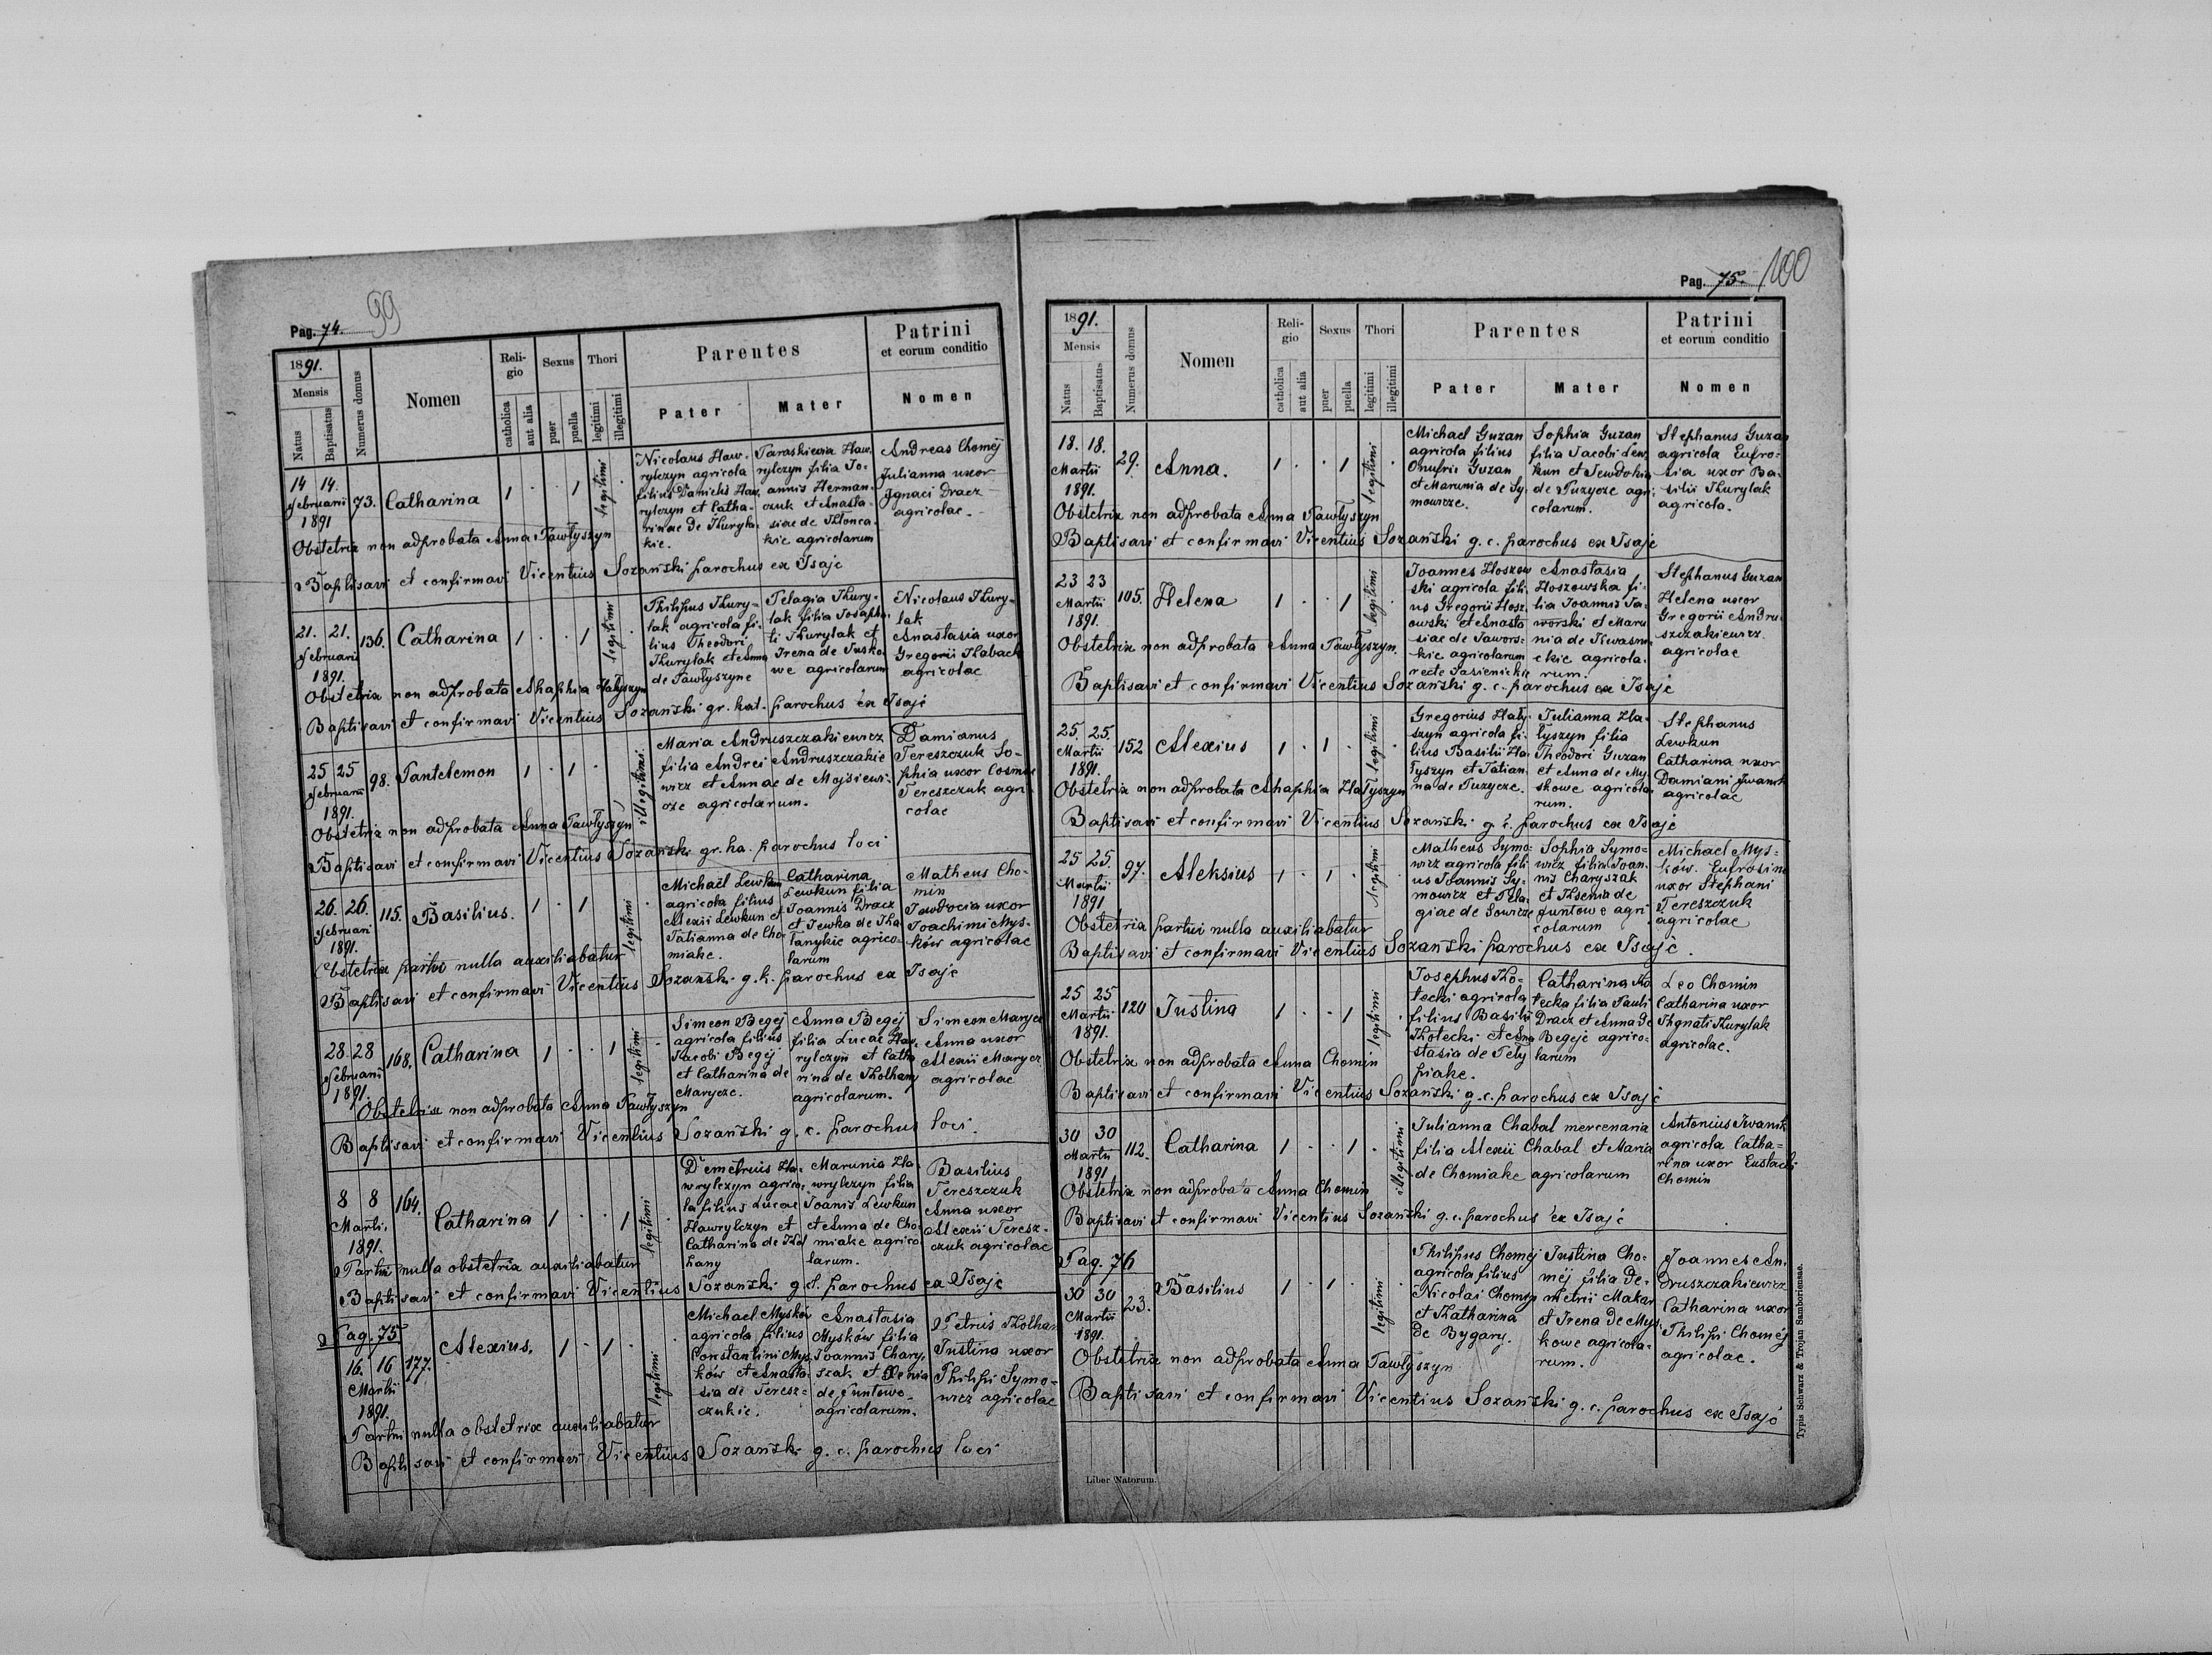 Pag. 74. 99
1891.
Mensis
Natus
Baptisatus
Numerus domus
Nomen
Reli-
gio
catholica
aut alia
Sexus
puer
puella
Thori
legitimi
illegitimi
Parentes
Pater
Mater
Patrini
et eorum conditio
Nomen
14 14.
Februarii
1891
73. Catharina 1 . . 1 legitimi .
Nicolaus Haw-
rylczyn agricola
filius Danielis Haw-
rylczyn et Catha-
rinae de Kuryla-
kie.
Paraskiewia Haw-
rylczyn filia Jo-
annis Herman-
czuk et Anasta-
siae de Klonca-
kie agricolarum
Andreas Choméj
Julianna uxor
Ignaci Dracz
agricolae.
Obstetrix non adprobata Anna Pawłyszyn
Baptisavi et confirmavi Vicentius Sozański parochus ex Isaje
21. 21.
Februarii
1891.
136. Catharina 1 . . 1 legitimi .
Philipus Kury-
lak agricola fi-
lius Theodori
Kurylak et Anna
de Pawłyszyne
Pelagia Kury-
lak filia Josapha-
ti Kurylak et
Irena de Jusko-
we agricolarum
Nicolaus Kury-
lak
Anastasia uxor
Gregorii Habach
agricolae
Obstetrix non adprobata Ahaphia Hałyszyn
Baptisavi et confirmavi Vicentius Sozański gr. kat. parochus ex Isaje
25 25
Februarii
1891.
98. Pantelemon 1 . 1 . illegitimi.
Maria Andruszczakiewicz
filia Andrei Andruszczakie
wicz et Annae de Mojsiewi-
cze agricolarum.
Damianus
Tereszczuk So-
phia uxor Cosmae
Tereszczuk agri
colae
Obstetrix non adprobata Anna Pawłyszyn
Baptisavi et confirmavi Vicentius Sozański gr. ka. parochus loci
26. 26.
Februari
1891.
115. Basilius. 1 . 1 . legitimi .
Michaël Lewkun
agricola filius
Alexii Lewkun et
Tatianna de Cho
miake.
Catharina
Lewkun filia
Joannis Dracz
et Jewka de Ha
łanykie agrico-
larum
Matheus Cho-
min
Jawdocia uxor
Joachimi Mys-
ków agricolae
Obstetrix partui nulla auxiliabatur
Baptisavi et confirmavi Vicentius Sozański g. k. parochus ex Isaje
28. 28
Februarii
1891.
168. Catharina 1 . . 1 legitimi .
Simeon Begej
agricola filius
Jacobi Begej
et Catharina de
Marycze.
Anna Begej
filia Lucae Haw-
rylczyn et Catha
rina de Kolhany
agricolarum.
Simeon Marycz
Anna uxor
Alexii Marycz
agricolae
Obstetrix non adprobata Anna Pawłyszyn
Baptisavi et confirmavi Vicentius Sozański g. c. parochus loci.
8 8
Martii.
1891.
164. Catharina 1 . . 1 legitimi .
Demetrius Ha-
wrylczyn agrico-
la filius Lucae
Hawrylczyn et
Catharina de Kol
hany
Marunia Ha-
wrylczyn filia
Joanis Lewkun
et Anna de Cho
miake agrico-
larum.
Basilius
Tereszczuk
Anna uxor
Alexii Teresz-
czuk agricolae
Partui nulla obstetrix auxiliabatur
Baptisavi et confirmavi Vicentius Sozański g. c. parochus ex Isaje
Pag. 75
16. 16
Martii
1891.
177. Alexius. 1 . 1 . legitimi .
Michael Mysków
agricola filius
Constantini Mys-
ków et Anasta-
sia de Teresz-
czukie.
Anastasia
Mysków filia
Joannis Chary-
szak et Xenia
de Funtowe
agricolarum.
Petrus Kolhan
Justina uxor
Philipi Symo-
wicz agricolae
Partui nulla obstetrix auxiliabatur
Baptisavi et confirmavi Vicentius Sozański g. c. parochus loci
Pag. 75. 100
1891.
Mensis
Natus
Baptisatus
Numerus domus
Nomen
Reli-
gio
catholica
aut alia
Sexus
puer
puella
Thori
legitimi
illegitimi
Parentes
Pater
Mater
Patrini
et eorum conditio
Nomen
18. 18.
Martii
1891.
29. Anna. 1 . . 1 legitimi .
Michael Guzan
agricola filius
Onufrii Guzan
et Marunia de Sy-
mowicze.
Sophia Guzan
filia Jacobi Lew
kun et Jewdokia
de Puzycze agri-
colarum.
Stephanus Guzan
agricola Eufro-
sia uxor Ba-
silii Kurylak
agricola.
Obstetrix non adprobata Anna Pawłyszyn
Baptisavi et confirmavi Vicentius Sozański g. c. parochus ex Isaje
23 23
Martii
1891.
105. Helena 1 . . 1 legitimi .
Joannes Hoszow
ski agricola fili-
us Gregorii Hosz-
owski et Anasta
siae de Jawors-
kie agricolarum
recte Jasienickie
Anastasia
Hoszowska fi-
lia Joannis Ja-
worski et Maru
nia de Kwasni-
ckie agricola-
rum.
Stephanus Guzan
Helena uxor
Gregorii Andru-
szczakiewicz
agricolae
Obstetrix non adprobata Anna Pawłyszyn.
Baptisavi et confirmavi Vicentius Sozański g. c. parochus ex Isaje
25. 25.
Martii
1891.
152 Alexius 1 . 1 . legitimi .
Gregorius Hały-
szyn agricola fi-
lius Basilii Ha-
łyszyn et Tatian-
na de Puzycze.
Julianna Ha-
łyszyn filia
Theodori Guzan
et Anna de My-
skowe agricola-
rum.
Stephanus
Lewkun
Catharina uxor
Damiani Iwanik
agricolae
Obstetrix non adprobata Ahaphia Hałyszyn
Baptisavi et confirmavi Vicentius Sozański g. c. parochus ex Isaje
25 25.
Martii
1891
97. Aleksius 1 . 1 . legitimi .
Matheus Symo-
wicz agricola fili
us Joannis Sy-
mowicz et Pela-
giae de Sowicze
Sophia Symo-
wicz filia Joan-
nis Charyszak
et Ksenia de
Funtowe agri
colarum
Michael Mys-
ków. Eufrosina
uxor Stephani
Tereszczuk
agricolae
Obstetrix partui nulla auxiliabatur
Baptisavi et confirmavi Vicentius Sozański parochus ex Isaje.
25 25
Martii
1891.
120 Justina 1 . . 1 legitimi .
Josephus Ko-
tecki agricola
filius Basilii
Kotecki et Ana
stasia de Pely
piake.
Catharina Ko
tecka filia Pauli
Dracz et Anna de
Begeje agrico-
larum
Leo Chomin
Catharina uxor
Ihgnati Kurylak
agricolae.
Obstetrix non adprobata Anna Chomin
Baptisavi et confirmavi Vicentius Sozański g. c. parochus ex Isaje
30 30
Martii
1891
112. Catharina 1 . . 1 . illegitimi
Julianna Chabal mercenaria
filia Alexii Chabal et Maria
de Chomiake agricolarum
Antonius Iwanik
agricola Catha-
rina uxor Eustachi
Chomin
Obstetrix non adprobata Anna Chomin
Baptisavi et confirmavi Vicentius Sozański g. c. parochus ex Isaje
Pag. 76
30 30
Martii
1891.
23. Basilius 1 . 1 . legitimi .
Philipus Chomej
agricola filius
Nicolai Chomej
et Katharina
de Bygary.
Justina Cho-
méj filia De-
metrii Makar
et Irena de Mys-
kowe agricola-
rum.
Joannes An-
druszczakiewicz
Catharina uxor
Philipi Choméj
agricolae.
Obstetrix non adprobata Anna Pawłyszyn
Baptisavi et confirmavi Vicentius Sozański g. c. parochus ex Isaje
Liber Natorum.
Typis Schwarz & Trojan Samboriensae.